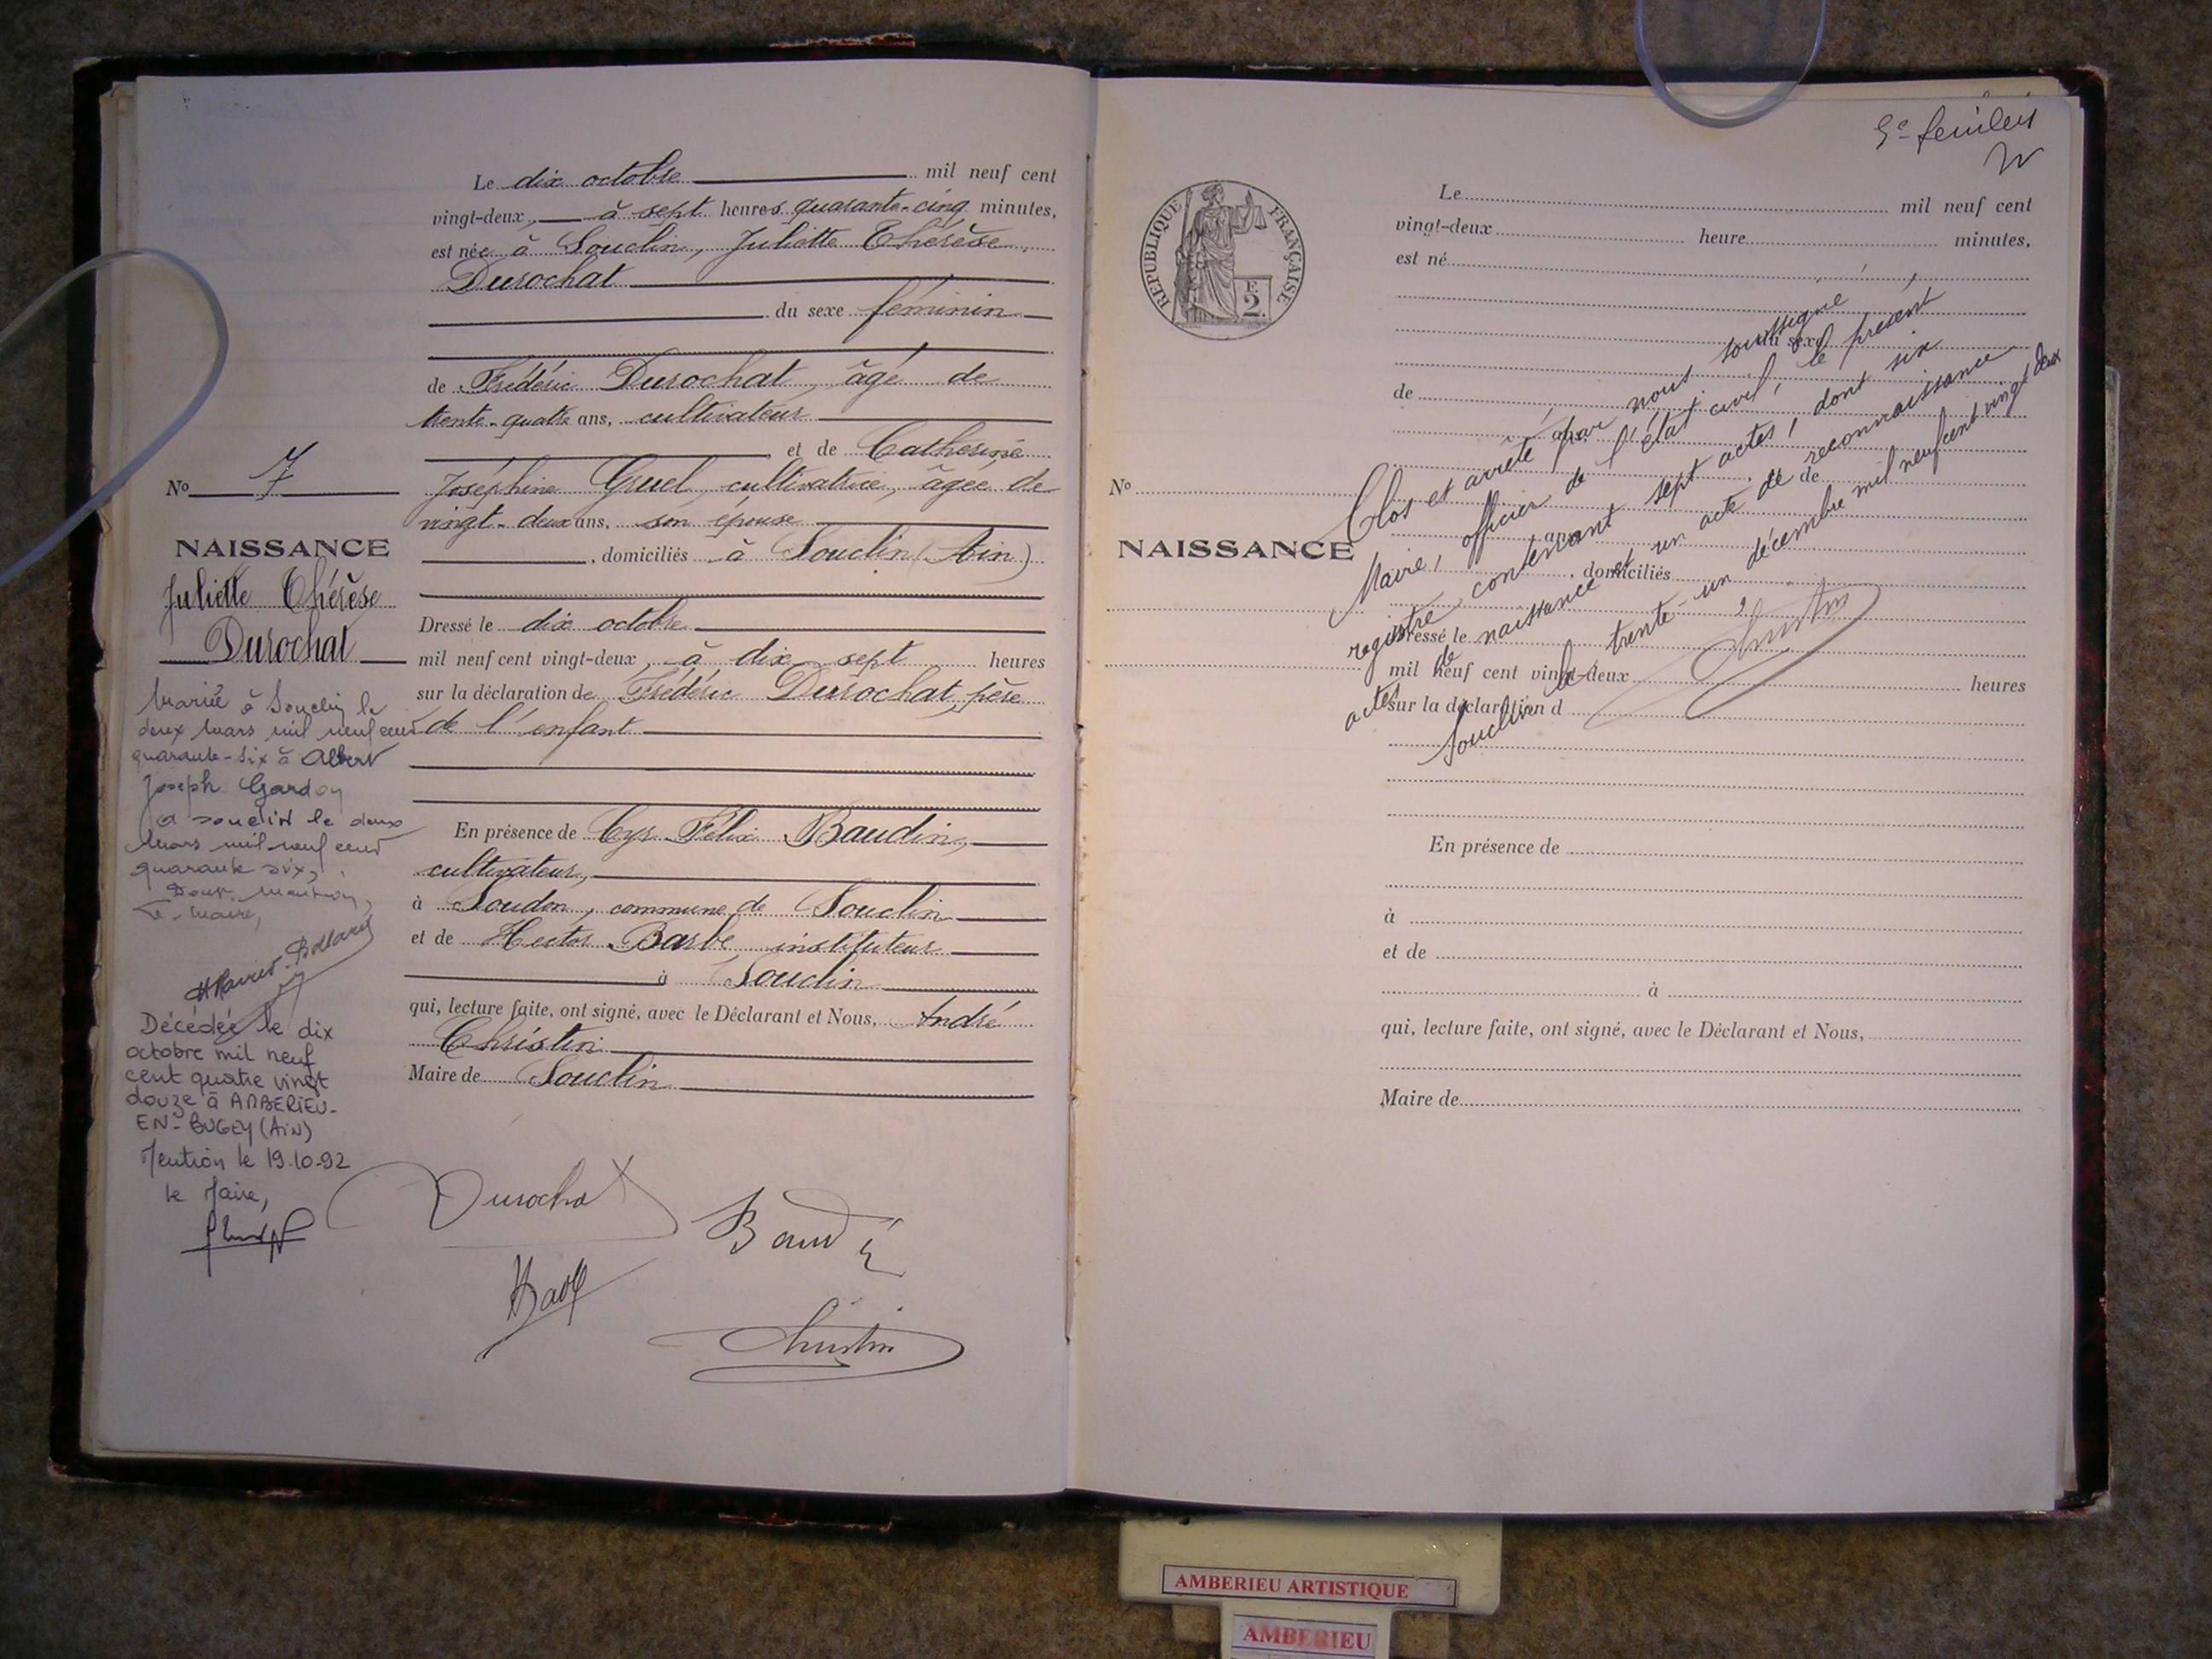 Le dix octobre mil neuf cent
vingt-deux, à sept heures quarante-cinq minutes,
est née à Souclin, Juliette Thérèse
Durochat
du sexe féminin
de Frédéric Durochat, âgé de
trente-quatre ans, cultivateur
et de Catherine
Joséphine Gruel, cultivatrice, âgée de
vingt-deux ans, son épouse
, domiciliés à Souclin (Ain)
Dressé le dix octobre
mil neuf cent vingt-deux, à dix-sept heures
sur la déclaration de Frédéric Durochat, père
de l'enfant
En présence de Cyr Félix Baudin,
cultivateur,
à Soudon, commune de Souclin
et de Hector Barbe, instituteur
à Souclin
qui, lecture faite, ont signé, avec le Déclarant et Nous, André
Christin
Maire de Souclin
Durochat
Baudin
Christin
No 7
NAISSANCE
Juliette Thérèse
Durochat
Mariée à Souclin le
deux mars mil neuf cent
quarante-six à Albert
Joseph Gardon
à Souclin le deux
mars mil neuf cent
quarante six,
Dont mention,
Le Maire,
Décédée le dix
octobre mil neuf
cent quatre vingt
douze à AMBERIEU-
EN-BUGEY (AIN)
Mention le 19.10.92
le Maire,
REPUBLIQUE FRANÇAISE
F.
2.
Le mil neuf cent
vingt-deux heure minutes,
est né
du sexe
de
ans
et de
ans
, domiciliés
Dressé le
mil neuf cent vingt-deux heures
sur la déclaration d
En présence de
à
et de
à
qui, lecture faite, ont signé, avec le Déclarant et Nous,
Maire de
No
NAISSANCE
Clos et arrêté par nous soussigné
Maire, officier de l'état civil, le présent
registre contenant sept actes, dont six
actes de naissance et un acte de reconnaissance
Souclin le trente-un décembre mil neuf cent vingt deux
Christin
AMBERIEU ARTISTIQUE
AMBERIEU